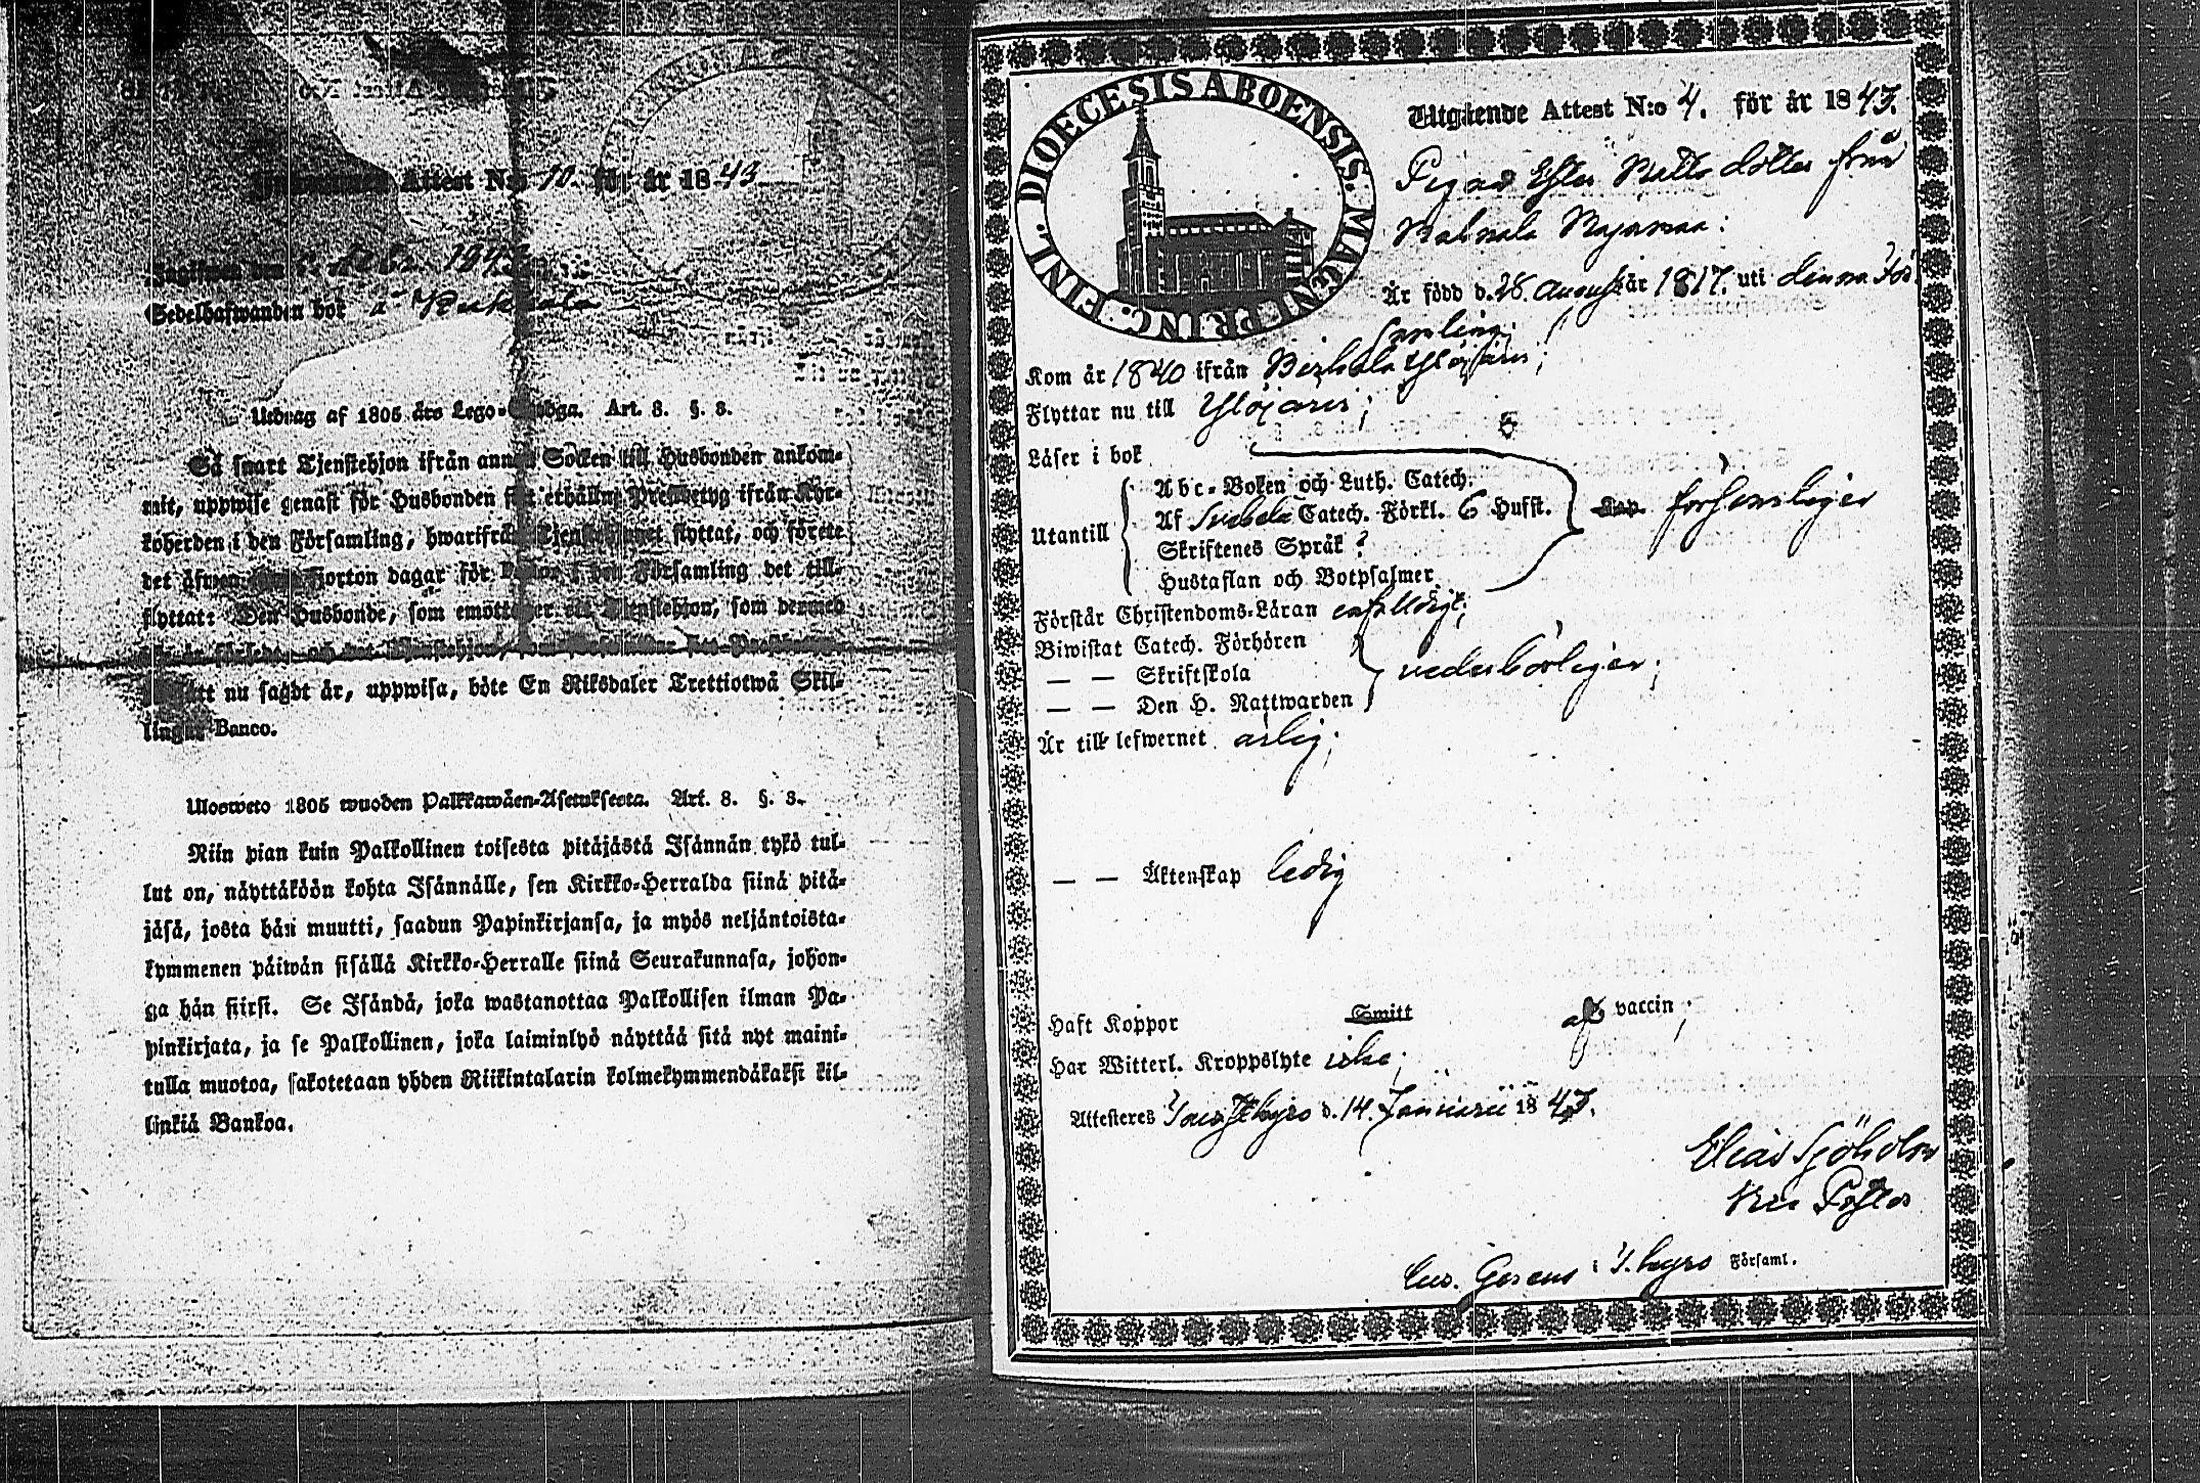 Attest N:o 10. för år 1843
Ingifwen den 1843
Sedelhafwanden bor å
Utdrag af 1805 års Lego-Stadga. Art. 8. §. 3.
Så snart Tjenstehjon ifrån annan Socken till Husbonden ankom-
mit, uppwise genast för Husbonden sitt erhållne Prestbetyg ifrån Kyr-
koherden i den Församling, hwarifrån Tjenstehjonet flyttat, och förete
det äfwen inom fjorton dagar för Pastor i den Församling det till-
flyttat: Den Husbonde, som emottager ett Tjenstehjon, som dermed
nu sagdt är, uppwisa, böte En Riksdaler Trettiotwå Skil-
lingar Banco.
Ulosweto 1805 wuoden Palkkawäen-Asetuksesta. Art. 8. §. 3.
Niin pian kuin Palkollinen toisesta pitäjästä Isännän tykö tul-
lut on, näyttäköön kohta Isännälle, sen Kirkko-Herralda siinä pitä-
jäsä, josta hän muutti, saadun Papinkirjansa, ja myös neljäntoista-
kymmenen päiwän sisällä Kirkko-Herralle siinä Seurakunnasa, johon-
ga hän siirsi. Se Isändä, joka wastanottaa Palkollisen ilman Pa-
pinkirjata, ja se Palkollinen, joka laiminlyö näyttää sitä nyt maini-
tulla muotoa, sakotetaan yhden Riikintalarin kolmekymmendäkaksi kil-
linkiä Bankoa.
FINL. DIOECESIS ABOENSIS. MAGNI PRINC.
Utgående Attest N:o 4. för år 1843.
Pigan Ester Matts dotter från
Är född d. 26 Augusti år 1817. uti denna För
samling;
Kom år 1840 ifrån Birkala Ylöjärvi;
Flyttar nu till Ylöjärvi;
Läser i bok
Utantill
Abc-Boken och Luth. Catech.
Af Svebelii Catech. Förkl. 6 Hufst.
Skriftenes Språk ?
Hustaflan och Botpsalmer
försvarligen
Förstår Christendoms-Läran enfaldigt;
Biwistat Catech. Förhören
— — Skriftskola
— — Den H. Nattwarden
vederbörligen;
Är till lefwernet ärlig;
— — Äktenskap ledig
Haft Koppor Smitt af vaccin;
Har Witterl. Kroppslyte icke;
Attesteres Tavastkyro d. 14. Januarii 1843.
Elias Sjöholm
Vice Pastor
Cur. Gerens i T.kyro Församl.